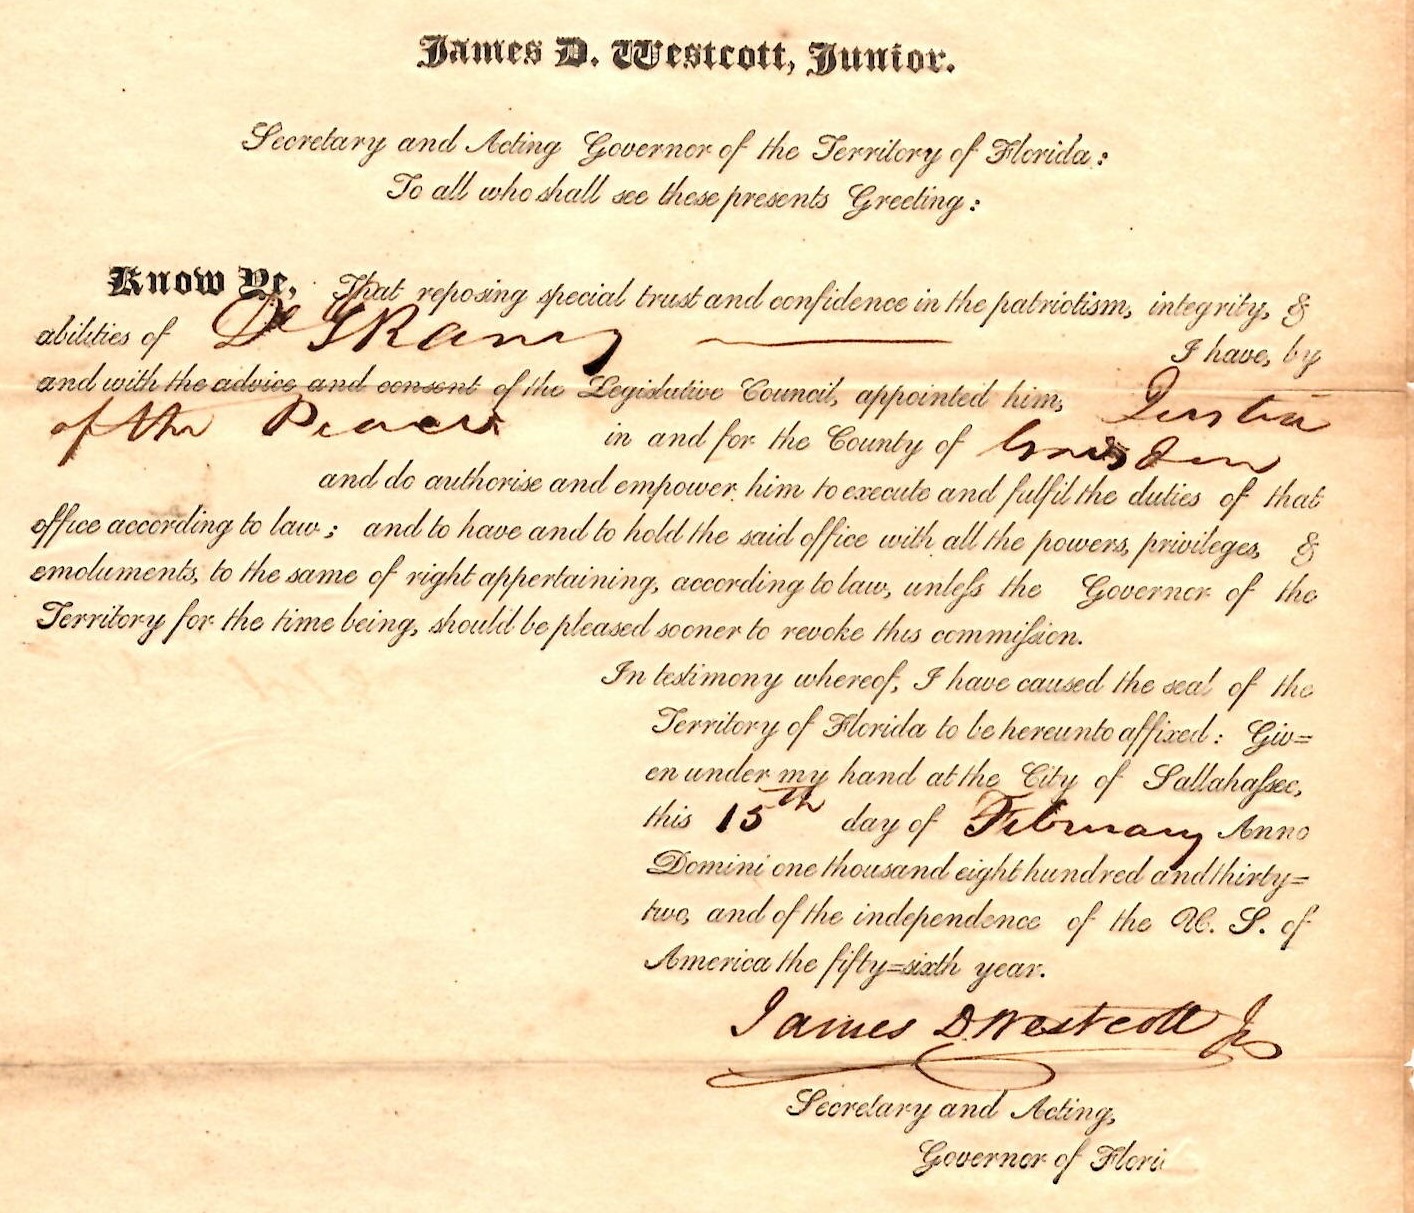 James D. Westcott, Junior.
Secretary and Acting Governor of the Territory of Florida:
To all who shall see these presents Greeting:
Know Ye, That reposing special trust and confidence in the patriotism, integrity, &
abilities of
I have, by
and with the advice and consent of the Legislative Council, appointed him, Justice
of the Peace in and for the County of
and do authorise and empower him to execute and fulfil the duties of that
office according to law; and to have and to hold the said office with all the powers, privileges, &
emoluments, to the same of right appertaining, according to law, unleſs the Governor of the
Territory for the time being, should be pleased sooner to revoke this commiſsion.
In testimony whereof, I have caused the seal of the
Territory of Florida to be hereunto affixed: Giv=
en under my hand at the City of Tallahaſsee,
this 15th day of February Anno
Domini one thousand eight hundred and thirty=
two, and of the independence of the U. S. of
America the fifty=sixth year.
James D. Westcott Jr
Secretary and Acting,
Governor of Flori